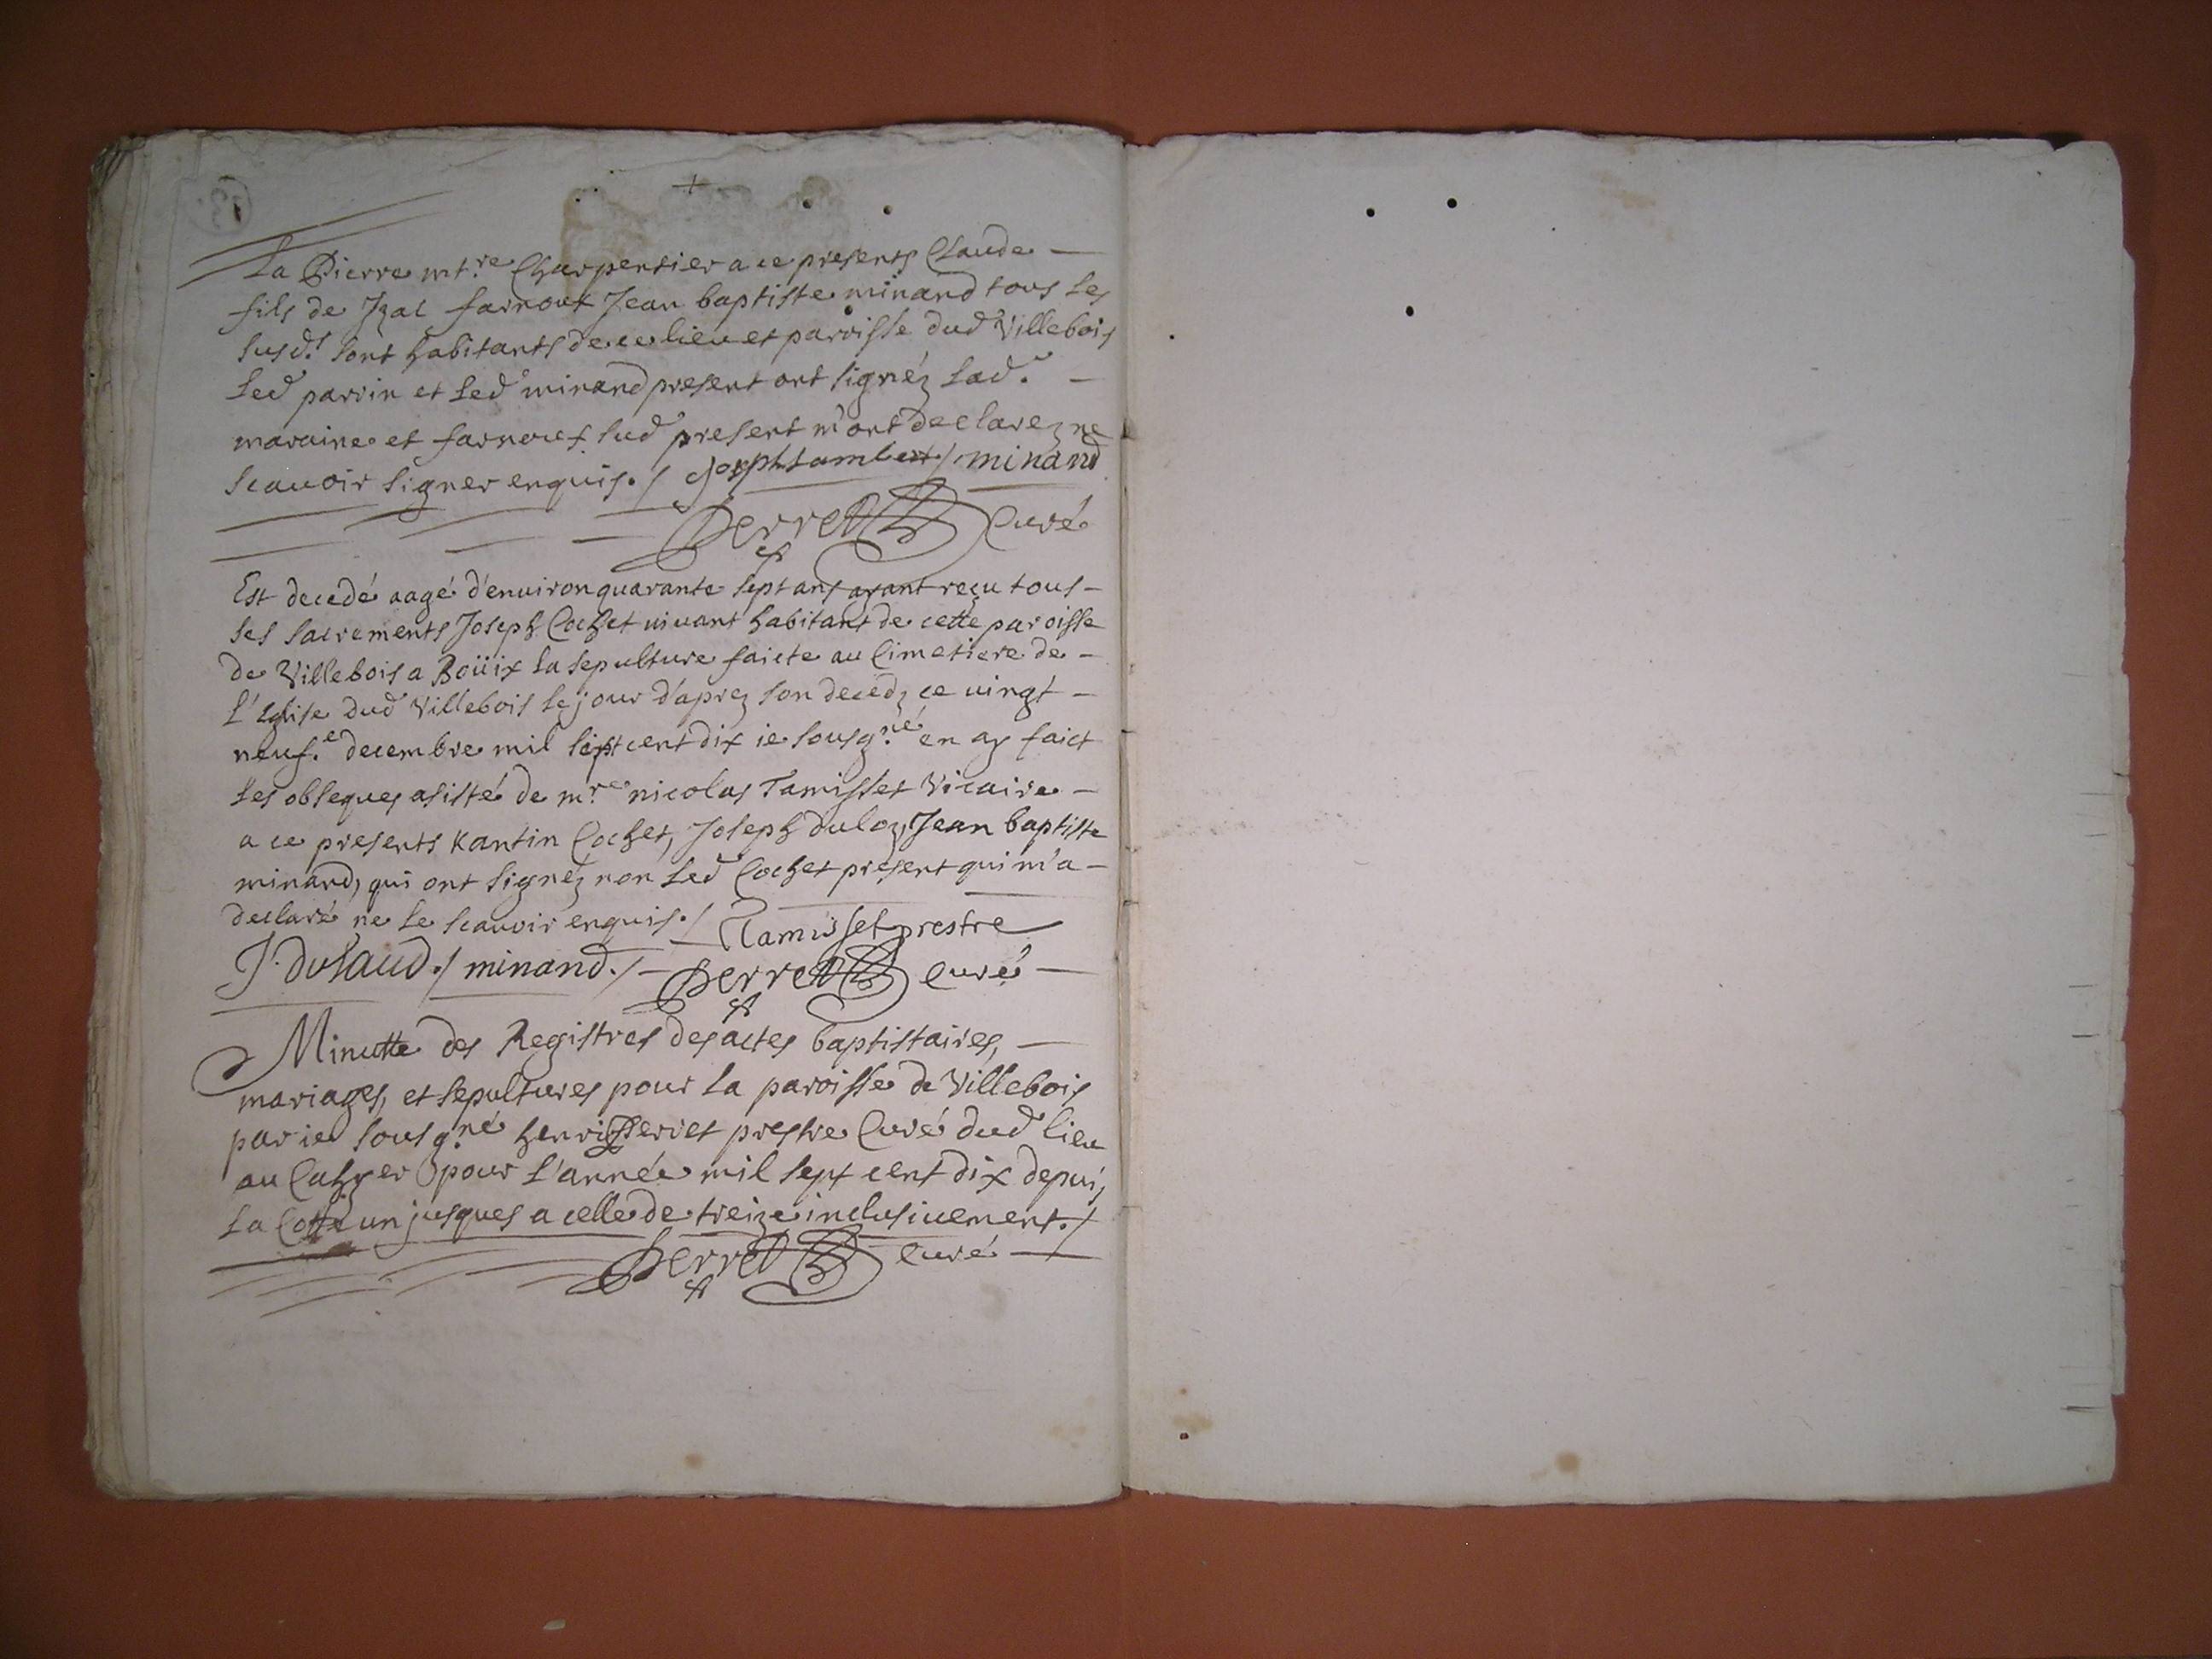 La Pierre mt.re Charpentier a ce presents Claude
fils de Izac farnoux Jean baptiste minand tous les
susd.t sont habitants de ce lieu et paroisse dud Villebois
led parrin et led minand present ont signéz lad.
maraine et farnoux sud present m'ont declarez ne
scauoir signer enquis./ Joseph Lambert / minand
Perret Curé
Est decedé aagé d'enuiron quarante sept ans ayant reçu tous
ses sacrements Joseph Cochet uiuant habitant de cette paroisse
de Villebois a Boüix la sepulture faicte au Cimetiere de
l'Eglise dud Villebois le jour d'aprez son decedz ce uingt
neuf.e decembre mil sept cent dix ie sousg.né en ay faict
les obseques asisté de m.re nicolas Tamisset Vicaire
a ce presents Kantin Cochet, Joseph duloz, Jean baptiste
minand, qui ont signéz non led Cochet present qui m'a
declaré ne le scauoir enquis./ Tamisset prestre
J. dulaud./ minand./ Perret curé
Minutte des Registres des actes baptistaires,
mariages, et sepultures pour la paroisse de Villebois
par ie sousg.né henri Perret prestre Curé dud lieu
au Cahyer pour l'année mil sept cent dix depuis
la Cotte un jusques a celle de treize inclusiuement./
Perret curé